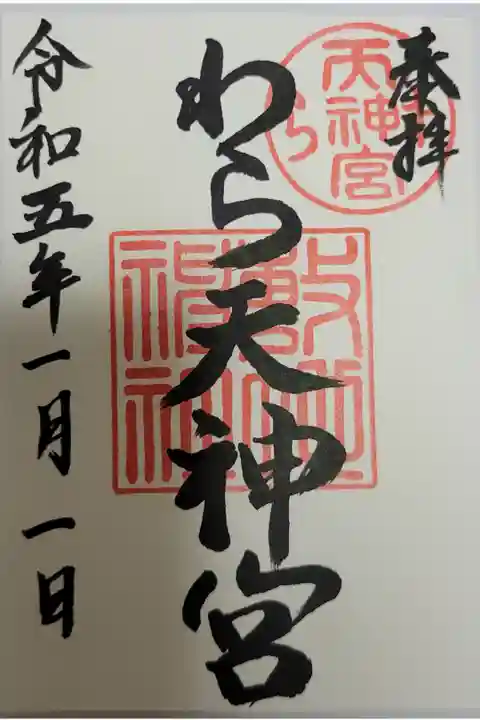 奉拝
わら天神宮
令和五年一月一日
天神宮
敷地神社